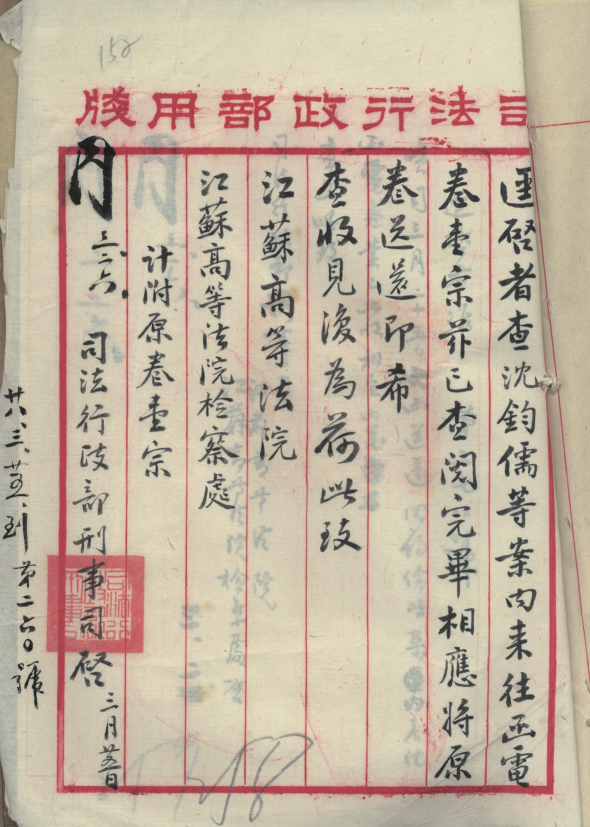 司法行政部用牋
逕啓者查沈鈞儒等案内来往函電
卷壹宗茲已查閱完畢相應將原
卷送還即希
查收見復為荷此致
江蘇高等法院
江蘇高等法院檢察處
計附原卷壹宗
司法行政部刑事司啓 三月廿五日
三.二六.
到 第二六〇號